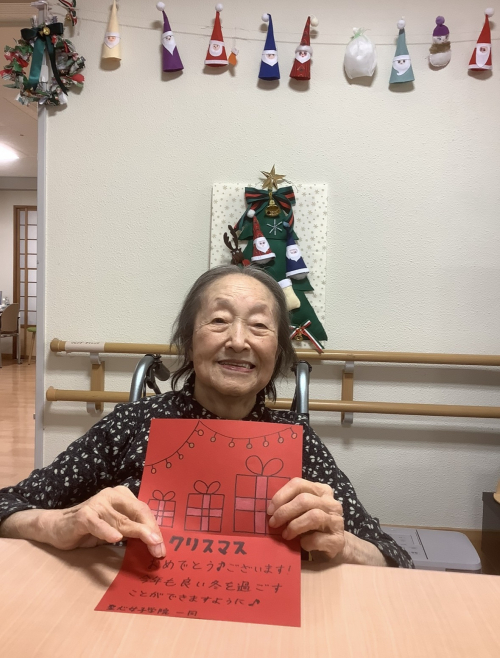 クリスマス
おめでとう♪ございます!
今年も良い冬を過ごす
ことができますように♪
一同